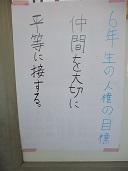 6年生の人権の目標
仲間を大切に
平等に接する。